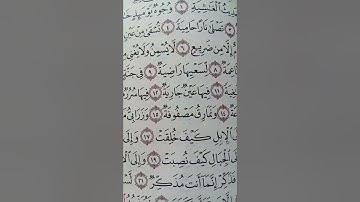 ٱلْغَٰشِيَةِ ١ وُجُوهٌ يَوْمَئِذٍ
٣ تَصْلَىٰ نَارًا حَامِيَةً ٤ تُسْقَىٰ مِنْ عَيْنٍ
إِلَّا مِن ضَرِيعٍ ٦ لَّا يُسْمِنُ وَلَا يُغْنِي
٨ لِّسَعْيِهَا رَاضِيَةٌ ٩ فِي جَنَّةٍ
١١ فِيهَا عَيْنٌ جَارِيَةٌ ١٢ فِيهَا سُرُرٌ
١٤ وَنَمَارِقُ مَصْفُوفَةٌ ١٥ وَزَرَابِيُّ
إِلَى ٱلْإِبِلِ كَيْفَ خُلِقَتْ ١٧ وَإِلَى
ٱلْجِبَالِ كَيْفَ نُصِبَتْ ١٩ وَإِلَى
فَذَكِّرْ إِنَّمَآ أَنتَ مُذَكِّرٌ ٢١